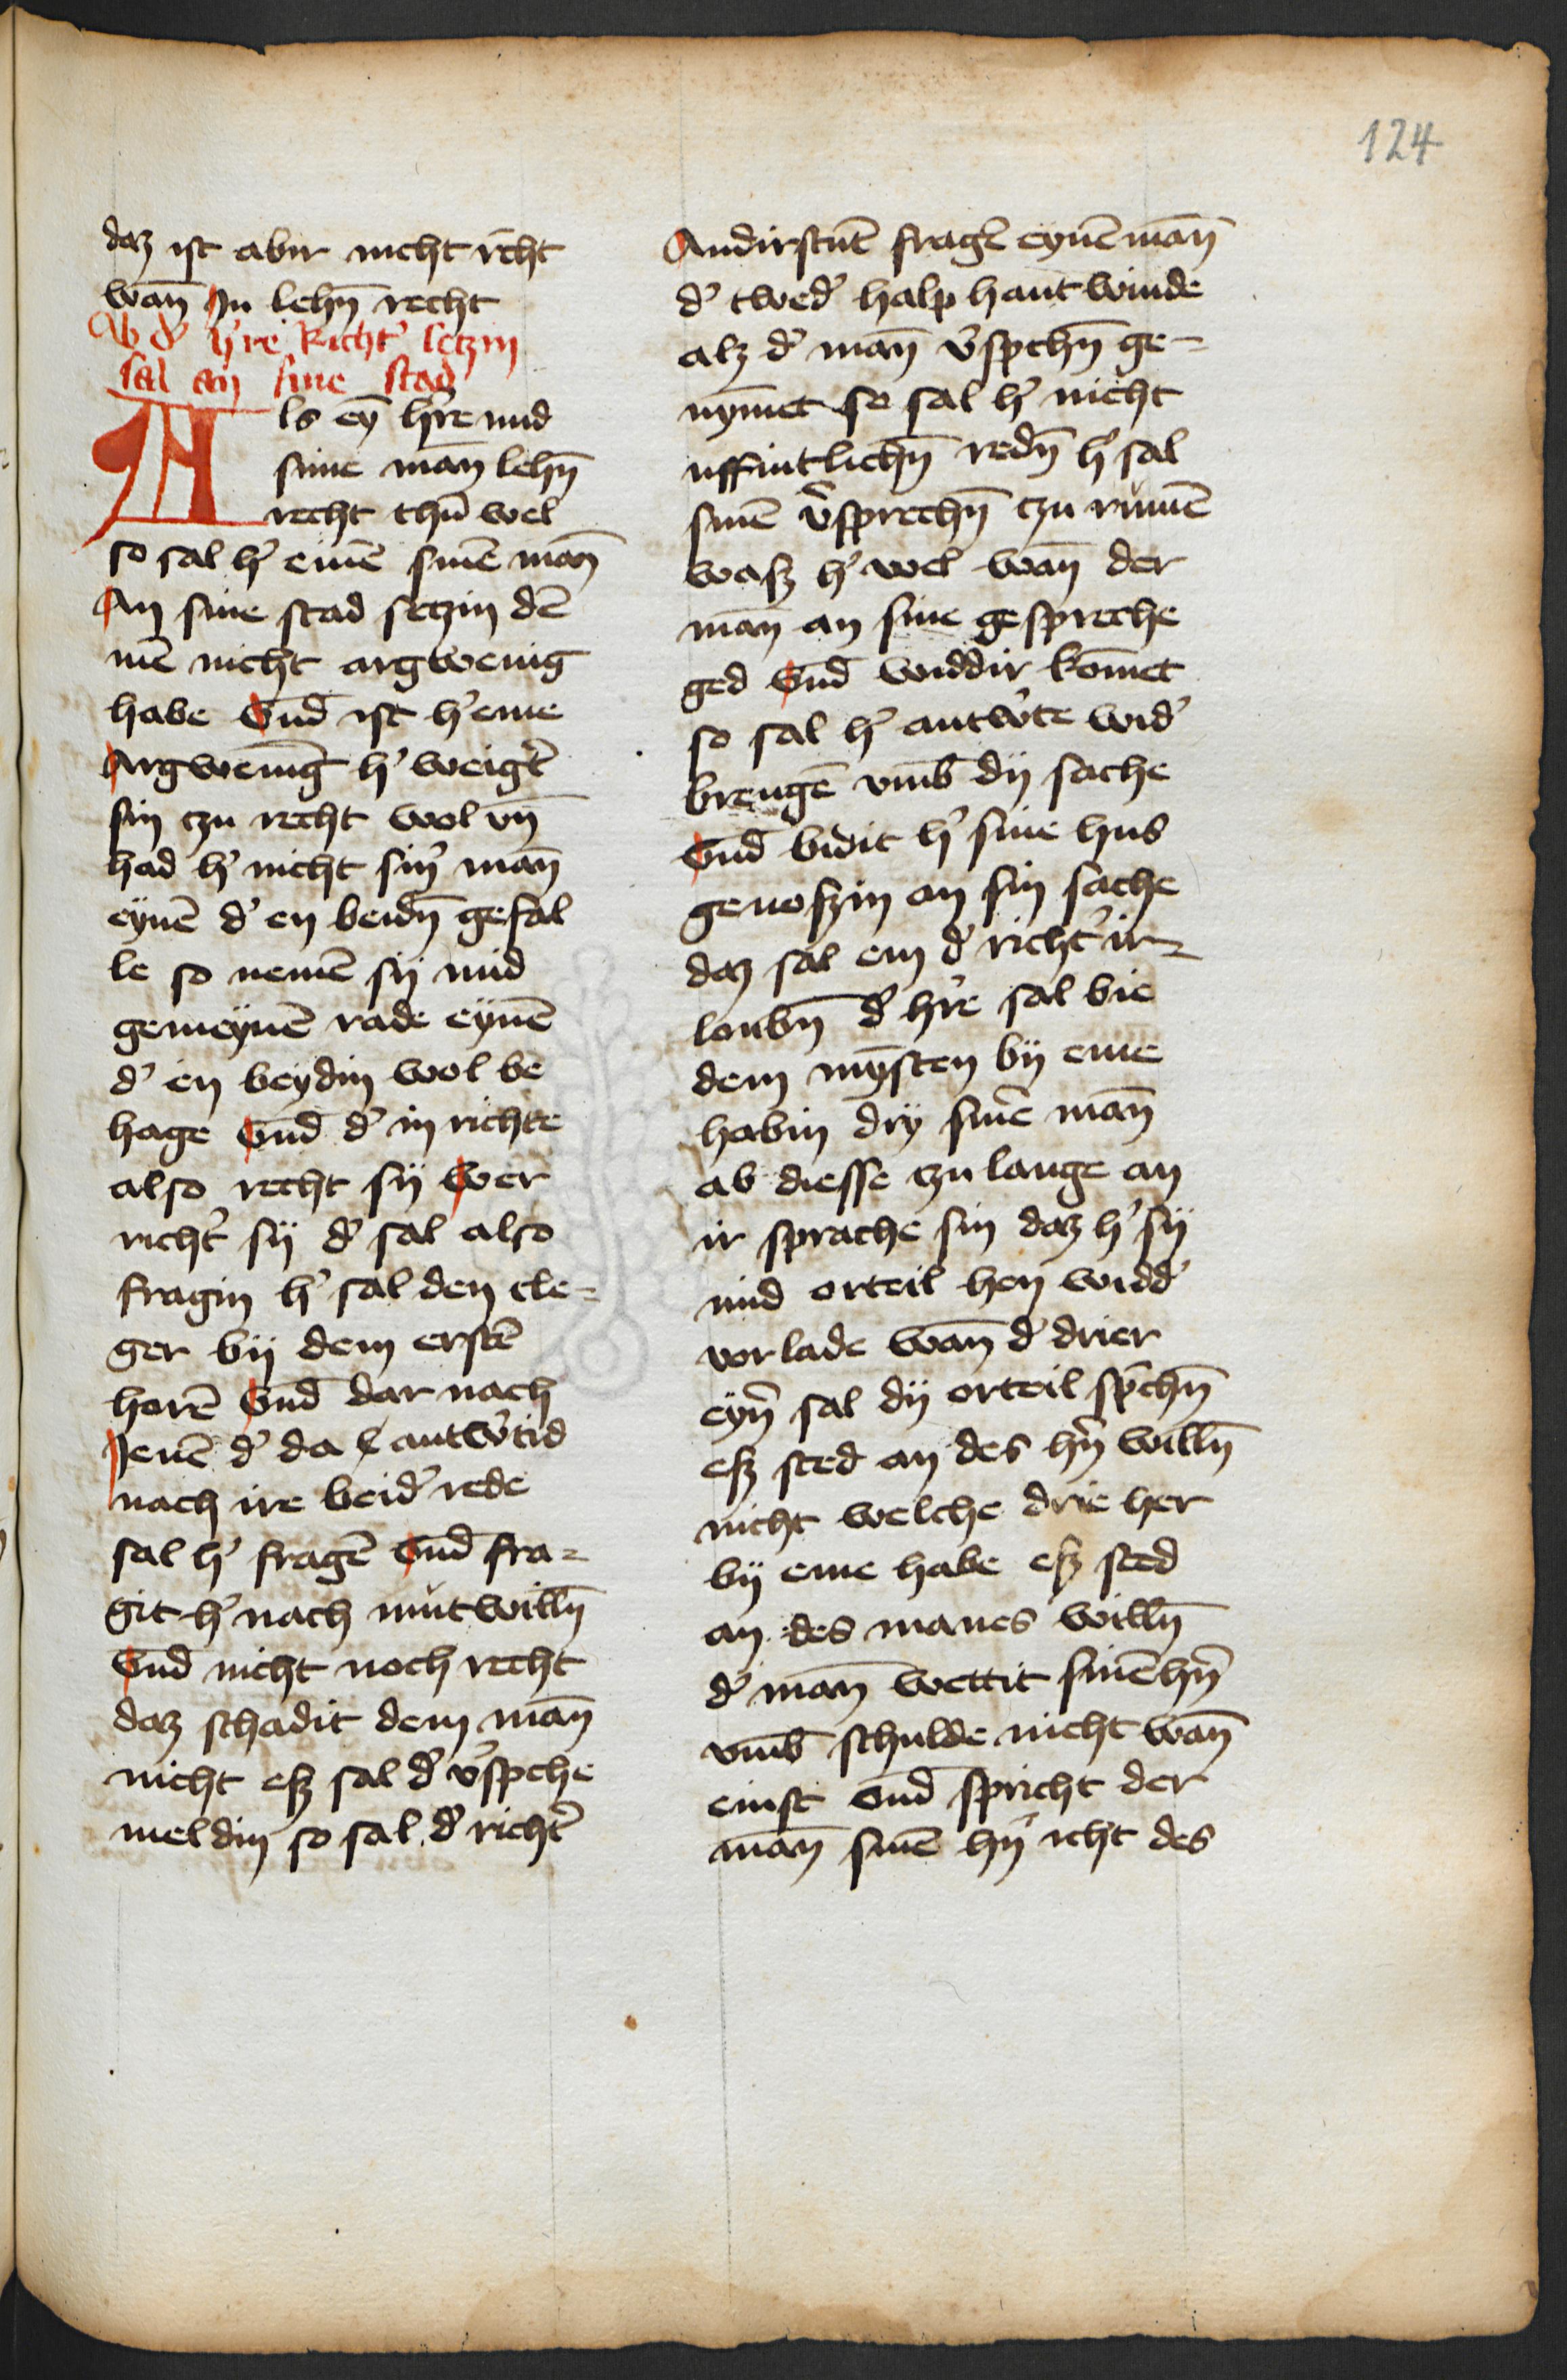 124
daz ist abir nicht recht
wan̄ In lehn̄ recht
Ab d' h're Richt' setzin
sal an sine stad
Als eȳ h're mid
sime man lehn̄
recht thū wel
so sal h' einē sinē man̄
An sine stad setzin dē
mē nicht argwenig
habe Vnd̄ ist h' eme
Argwenig h' weig't
sin tzu recht wol vn̄
had h' nicht sin' man̄
eynē d' en beidn̄ gefal
le so nemē sij mid
gemeynē rade eynē
d' en beydin wol be
hage Vnd̄ d' in richte
also recht sij Wer
richt' sij d' sal also
fragin h' sal den cle-
ger bij dem erstē
horē Vnd̄ dar nach
Jenē d' da antw'tid
nach ire beid' rede
sal h' fragē Vnd̄ fra-
git h' nach mutwilln̄
Vnd̄ nicht noch recht
daz schadit dem man̄
nicht esz sal d' v'spche
meldin so sal d' richt'
Andirstūt fragē eynē man̄
d' twed' halp hant winde
alz d' man̄ v'spchn̄ ge-
nym̄et so sal h' nicht
uffintlichn̄ redn̄ h' sal
sinē v'sprechn̄ tzu rumē
wasz h' wel wan̄ der
man̄ an sine gespreche
ged Vnd̄ widdir kom̄et
so sal h' antw'te wid'
brengē vmb̄ dij sache
Vnd̄ bidit h' sine hus
genoszin an sin sache
daz sal em d' richt' ir-
loubn̄ d' h're sal bie
dem mȳsten bij eme
habin drij sinē man̄
ab diesse tzu lange an
ir sprache sin daz h' sij
mid orteil hen widd'
vorlade wan̄ d' drier
eyn̄ sal dij orteil sp'chn̄
esz sted an des hn̄ willn̄
nicht welche drie her
bij eme habe esz sted
an des manes willn̄
d' man̄ wettit sinē hn̄
vmb̄ schulde nicht wan̄
einst Vnd̄ spricht der
man̄ sinē hn̄ icht des